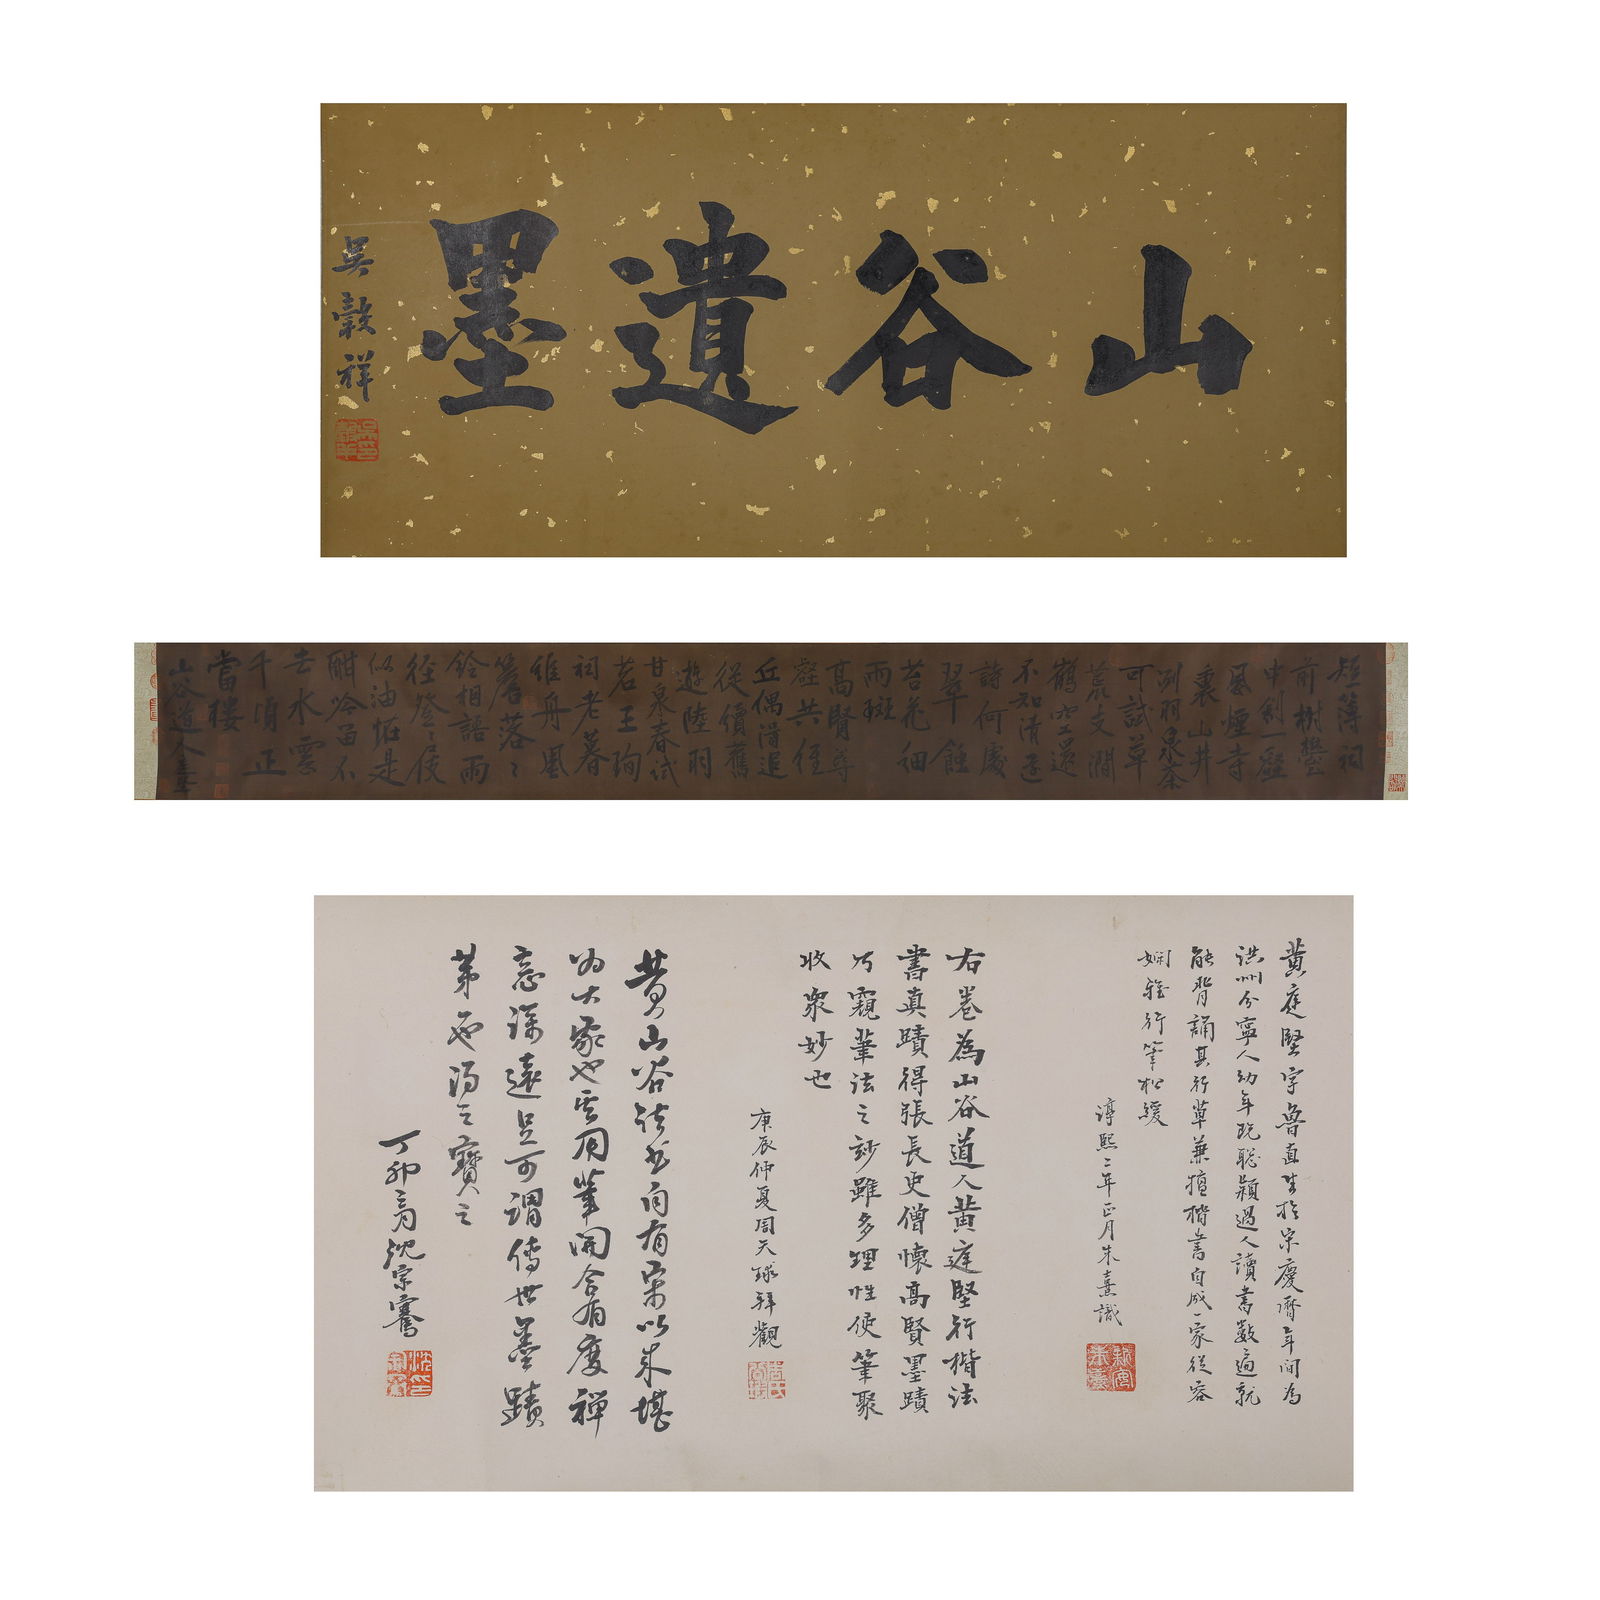 山谷遺墨
吳穀祥
短薄祠
前樹樾
中剩一龕
風煙寺
裏山井
冽羽泉茶
可試草
荒支澗
鶴空還
不知清遠
詩何處
翠蝕
苔花細
雨斑
高賢等
龕共徃
丘偶潛追
從償舊
遊陸羽
甘泉春試
茗王珣
祠老暮
維舟風
簷落落
鈴相語雨
徑登登屐
似油花是
酣吟留不
去水雲
千頃正
當樓
山谷道人
黃庭堅字魯直生於宋慶曆年間為
洪州分寧人幼年既聰穎過人讀書數遍就
能背誦其行草兼擅楷書自成一家從容
嫻雅行筆松緩
淳熙二年正月朱熹識
右卷為山谷道人黃庭堅行楷法
書真蹟得張長史僧懷高賢墨蹟
乃窺筆法之妙雖多理性使筆聚
收眾妙也
庚辰仲夏周天球拜觀
黃山谷法書向有宋以來堪
為大家也其用筆開合有度禪
意深遠足可謂傳世墨蹟
第也得之寶之
丁卯 沈宗騫